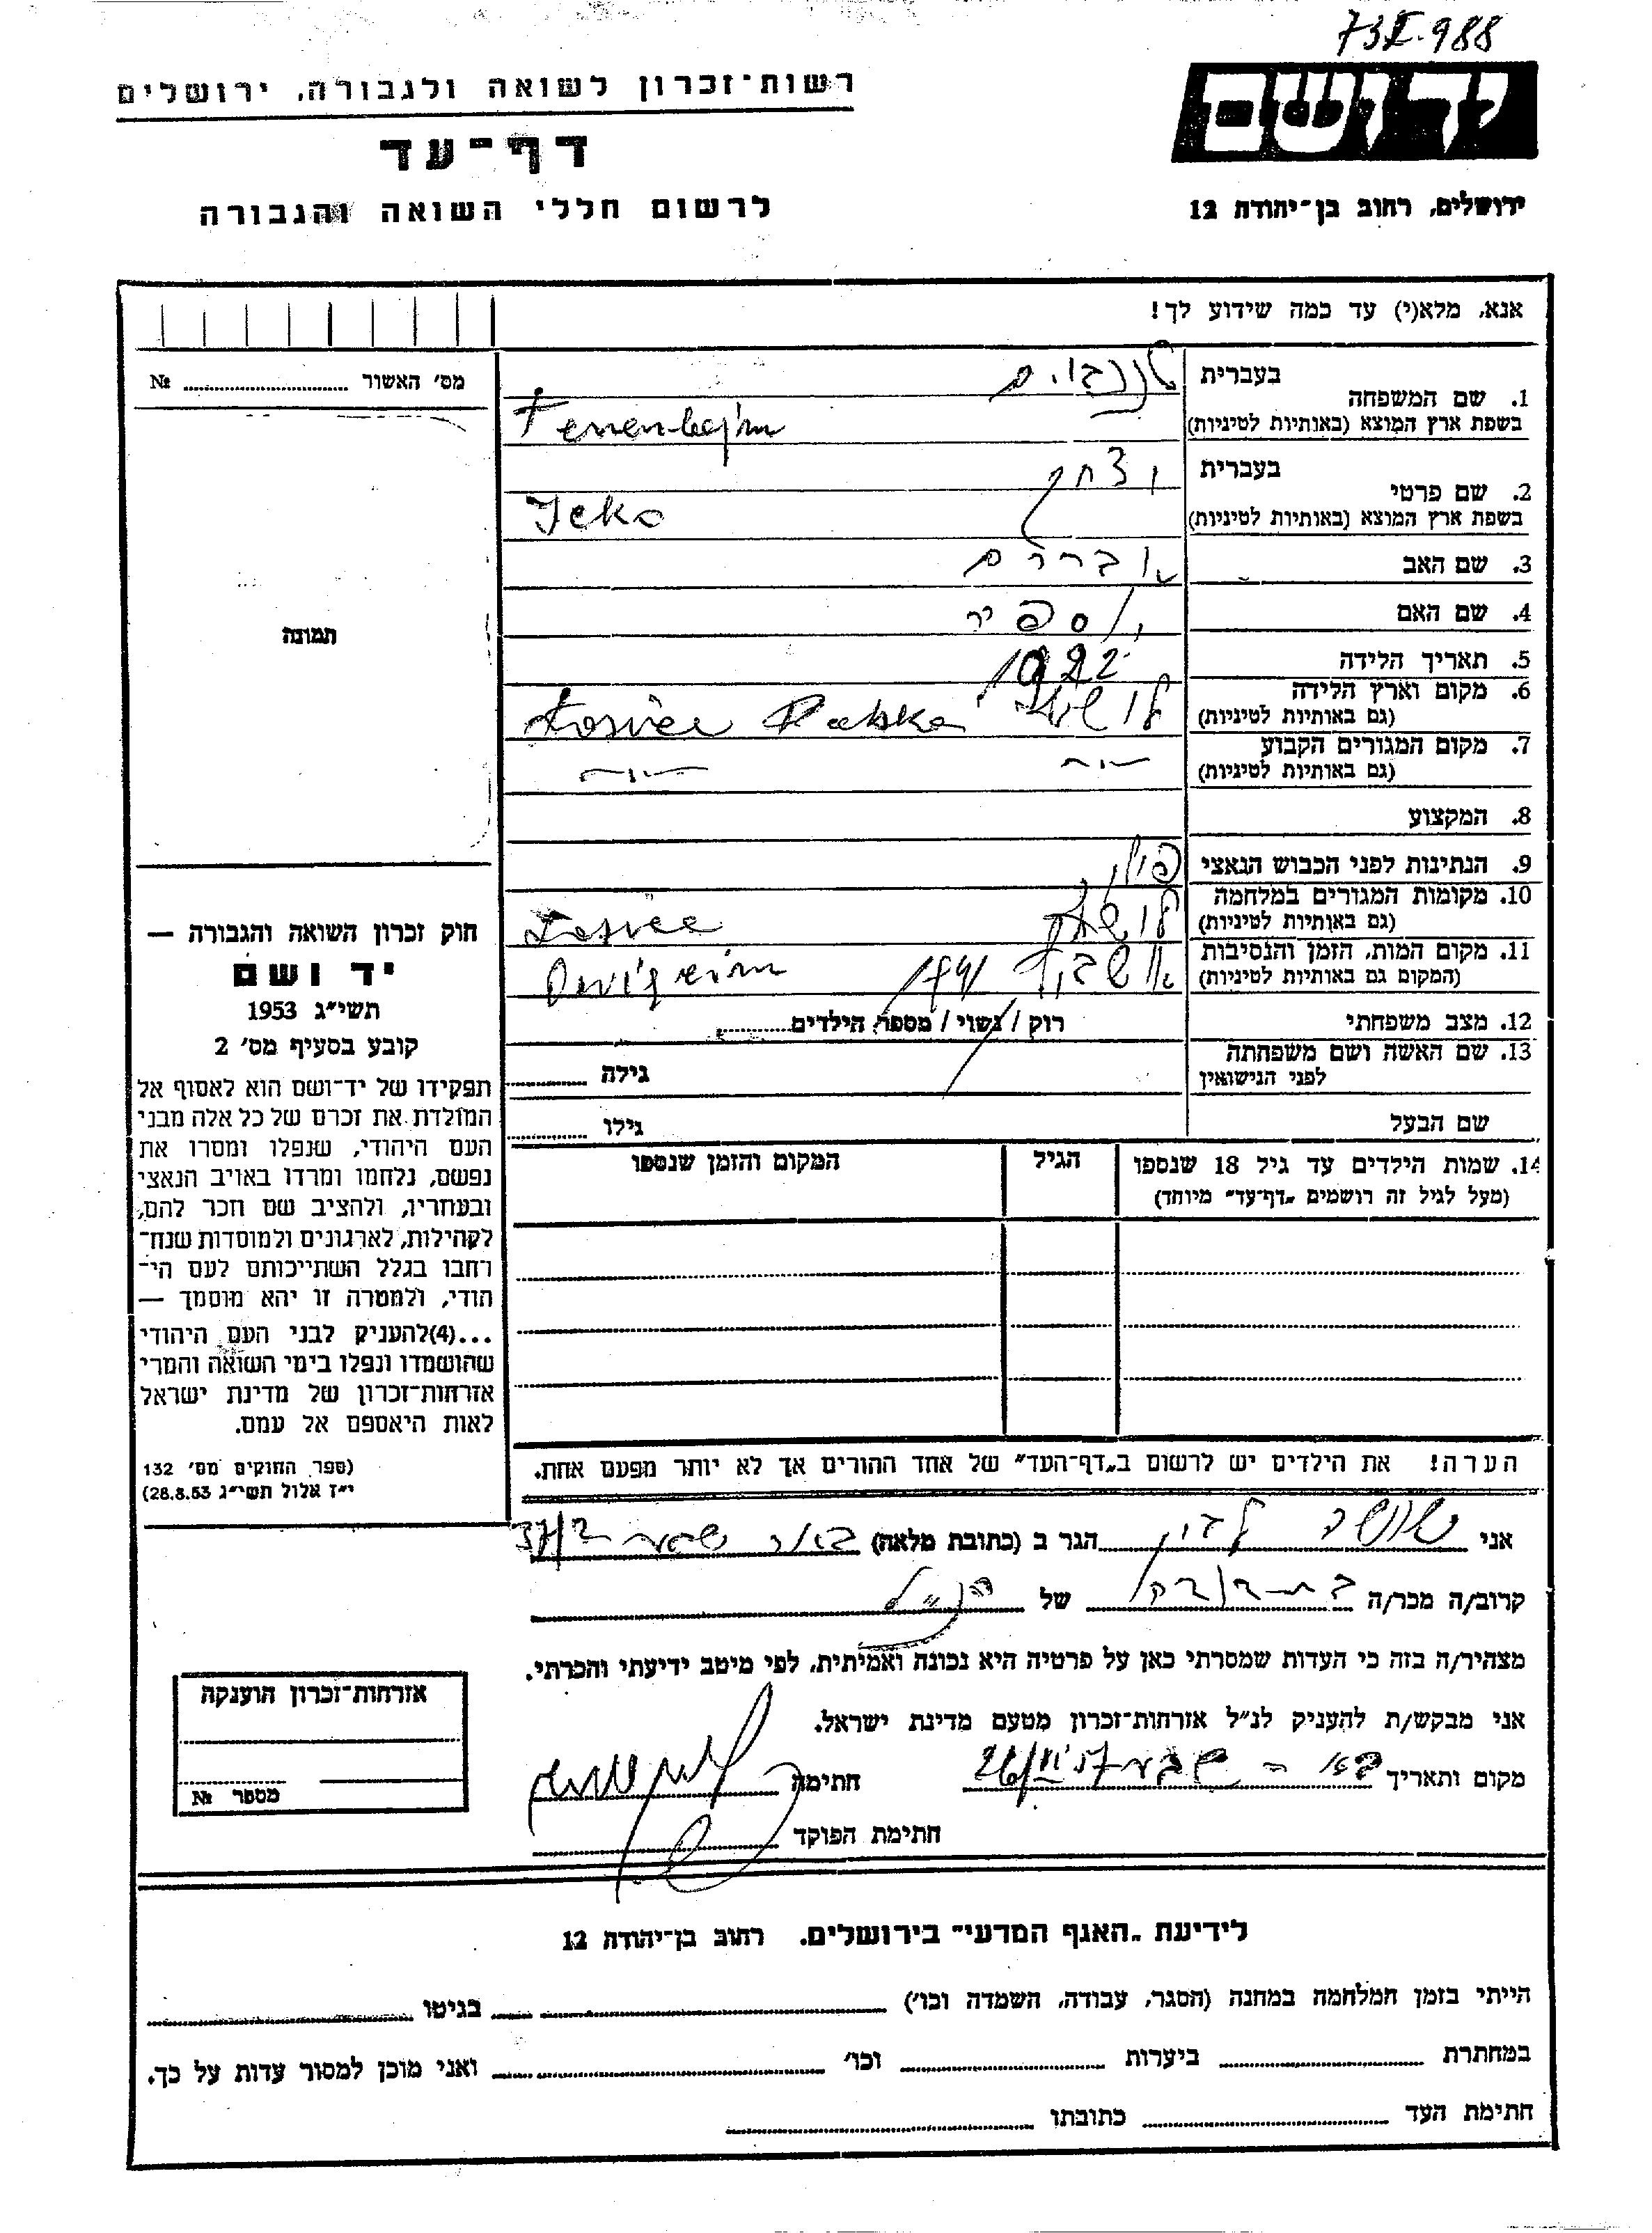 731.988
רשות־זכרון לשואה ולגבורה, ירושלים
יד ושם
דף־עד
לרשום חללי השואה והגבורה
ירושלים, רחוב בן־יהודה 12
אנא, מלא(י) עד כמה שידוע לך!
מס׳ האשור № 
תמונה
חוק זכרון השואה והגבורה —
יד ושם
תשי״ג 1953
קובע בסעיף מס׳ 2
תפקידו של יד־ושם הוא לאסוף אל
המולדת את זכרם של כל אלה מבני
העם היהודי, שנפלו ומסרו את
נפשם, נלחמו ומרדו באויב הנאצי
ובעוזריו, ולהציב שם וזכר להם,
לקהילות, לארגונים ולמוסדות שנח־
רבו בגלל השתייכותם לעם הי־
הודי, ולמטרה זו יהא מוסמך —
...(4)להעניק לבני העם היהודי
שהושמדו ונפלו בימי השואה והמרי
אזרחות־זכרון של מדינת ישראל
לאות היאספם אל עמם.
(ספר החוקים מס׳ 132
י״ז אלול תשי״ג 28.8.53)
1. שם המשפחה בעברית טננבוים
בשפת ארץ המוצא (באותיות לטיניות) Tenenbajm
2. שם פרטי בעברית יצחק
בשפת ארץ המוצא (באותיות לטיניות) Icko
3. שם האב אברהם
4. שם האם
5. תאריך הלידה 1922
6. מקום וארץ הלידה
(גם באותיות לטיניות) Losice
7. מקום המגורים הקבוע
(גם באותיות לטיניות) —״— —״—
8. המקצוע
9. הנתינות לפני הכבוש הנאצי
10. מקומות המגורים במלחמה
(גם באותיות לטיניות) Losice
11. מקום המות, הזמן והנסיבות
(המקום גם באותיות לטיניות)
12. מצב משפחתי רוק / נשוי / מספר הילדים
13. שם האשה ושם משפחתה
לפני הנישואין גילה
שם הבעל גילו
14. שמות הילדים עד גיל 18 שנספו הגיל המקום והזמן שנספו
(מעל לגיל זה רושמים „דף־עד״ מיוחד)
הערה! את הילדים יש לרשום ב„דף־העד״ של אחד ההורים אך לא יותר מפעם אחת.
אני שושנה הגר ב (כתובת מלאה) באר שבע
קרוב/ה מכר/ה של הנ״ל
מצהיר/ה בזה כי העדות שמסרתי כאן על פרטיה היא נכונה ואמיתית, לפי מיטב ידיעתי והכרתי.
אני מבקש/ת להעניק לנ״ל אזרחות־זכרון מטעם מדינת ישראל.
מקום ותאריך באר שבע חתימה
חתימת הפוקד
אזרחות־זכרון הוענקה
מספר №
לידיעת „האגף המדעי״ בירושלים. רחוב בן־יהודה 12
הייתי בזמן המלחמה במחנה (הסגר, עבודה, השמדה וכו׳) בגיטו
במחתרת ביערות וכו׳ ואני מוכן למסור עדות על כך.
חתימת העד כתובתו